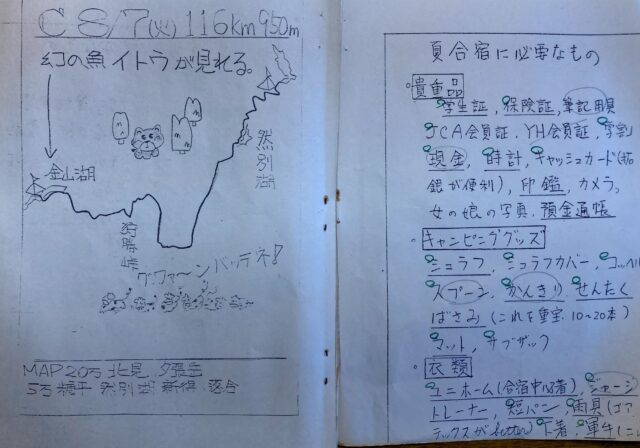 C 8/7(火) 116km 950m
幻の魚イトウが見れる。
金山湖
然別湖
狩勝峠
グッファ〜ンバッテネ!
MAP 20万 北見 夕張岳
5万 糠平 然別湖 新得 落合
夏合宿に必要なもの
・貴重品
学生証，保険証，筆記用具
JCA会員証，YH会員証，学割
現金，時計，キャッシュカード(拓
銀が便利)，印鑑，カメラ，
女の娘の写真，預金通帳
・キャンピンググッズ
シュラフ，シュラフカバー，コッヘル
スプーン，かんきり，せんたく
ばさみ(これを重宝．10〜20本)
マット，サブザック
・衣類
ユニホーム(合宿中必着)，ジャージ
トレーナー，短パン，雨具(ゴア
テックスがbetter)下着，軍手(こ